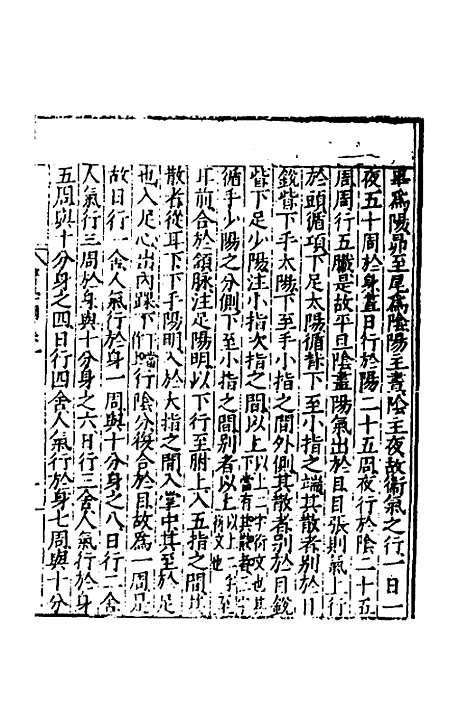 畢爲陽昴至尾爲陰陽主晝陰主夜故衛氣之行一日一
夜五十周於身晝日行於陽二十五周夜行於陰二十五
周周行五臓是故平旦陰盡陽氣出於目目張則氣上行
於頭循項下足太陽循背下至小指之端其散者別於目
銳眥下手太陽下至手小指之間外側其散者別於目銳
眥下足少陽注小指次指之間以上以上二字衍文也下當有其散者三字
循手少陽之分側下至小指之間别者以上以上二字衍文也至
耳前合於頷脉注足陽明以下行至胕上入五指之間其
散者從耳下下手陽明入於大指之間入掌中其至於足
也入足心出內踝下行陰分復合於目故爲一周是
故日行一舍人氣行於身一周與十分身之八日行二舍
人氣行三周於身與十分身之六日行三舍人氣行於身
五周與十分身之四日行四舍人氣行於身七周與十分